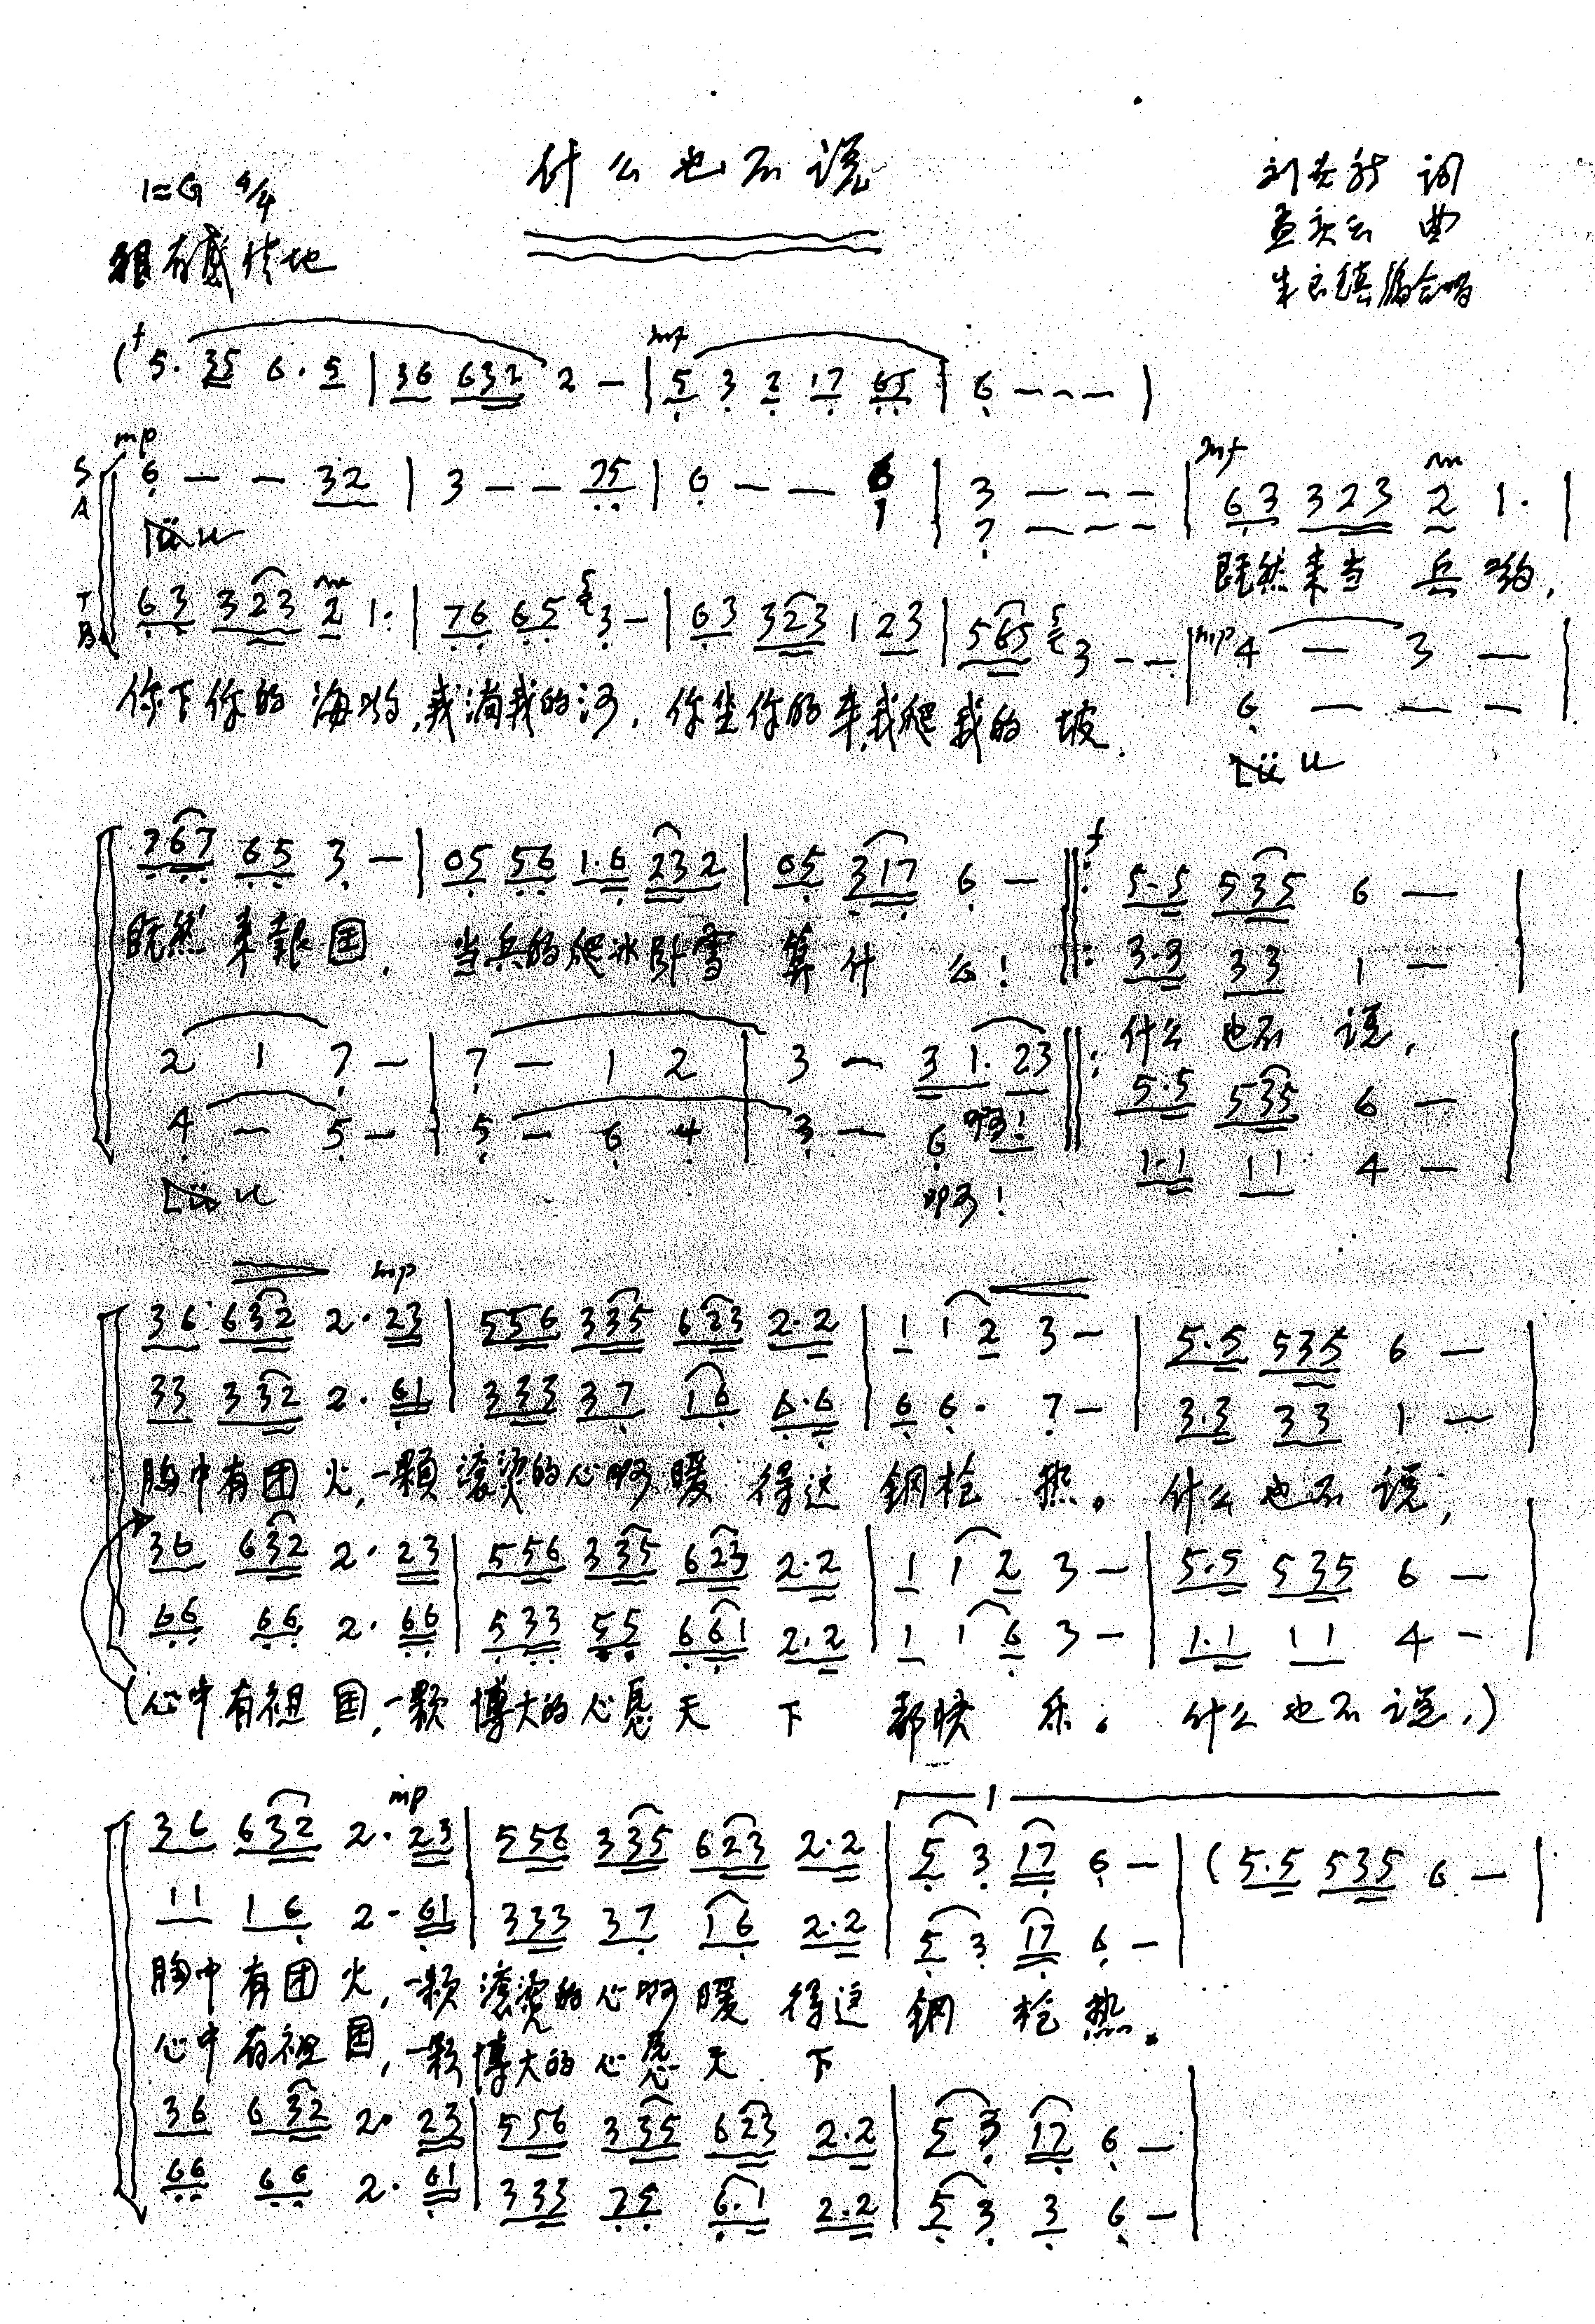 什么也不说
1=G 4/4
有感情地
词
曲
编合唱
f mf
(5. 35 6. 5 | 36 632 2 - | 5 3 2 17 65 | 6 - - - |
mp mf
S 6 - - 32 | 3 - - 75 | 6 - - 6 | 3 - - - | 63 323 2 1. |
A 1 | 7 - - -
Lü u
既然来当 兵 哟,
T 63 323 2 1. | 76 65 3 - | 63 323 1 23 | 565 3 - - | mp 4 - 3 - |
B 6 - - -
你下你的 海哟,我淌我的河. 你坐你的车,我爬我的 坡.
Lü u
767 65 3 - | 05 56 1.6 232 | 05 317 6 - |: f 5.5 535 6 - |
3.3 33 1 - |
既然 来报国. 当兵的爬冰卧雪 算什 么!
什么 也不 说,
2 1 7 - | 7 - 1 2 | 3 - 3 1. 23 |: 5.5 535 6 - |
4 - 5 - | 5 - 6 4 | 3 - 6 啊! 1.1 11 4 -
Lü u 啊!
mp
36 632 2. 23 | 556 335 623 2.2 | 1 1 2 3 - | 5.5 535 6 - |
33 332 2. 61 | 333 37 16 6.6 | 6 6. 7 - | 3.3 33 1 - |
胸中有团 火,一颗 滚烫的心啊 暖 得这 钢枪 热。 什么 也不 说,
36 632 2. 23 | 556 335 623 2.2 | 1 1 2 3 - | 5.5 535 6 - |
66 66 2. 66 | 533 55 661 2.2 | 1 1 6 3 - | 1.1 11 4 - |
(心中有祖 国,一颗 博大的心愿 天 下 都快 乐。 什么 也不 说,)
mp 1
36 632 2. 23 | 556 335 623 2.2 | 5 3 17 6 - | (5.5 535 6 - |
11 16 2. 61 | 333 37 16 2.2 | 5 3 17 6 - |
胸中 有团 火,一颗 滚烫的心啊 暖 得这 钢 枪 热。
心中 有祖 国,一颗博大的心愿 天 下
36 632 2. 23 | 556 335 623 2.2 | 5 3 17 6 - |
66 66 2. 61 | 333 75 6.1 2.2 | 5 3 3 6 - |